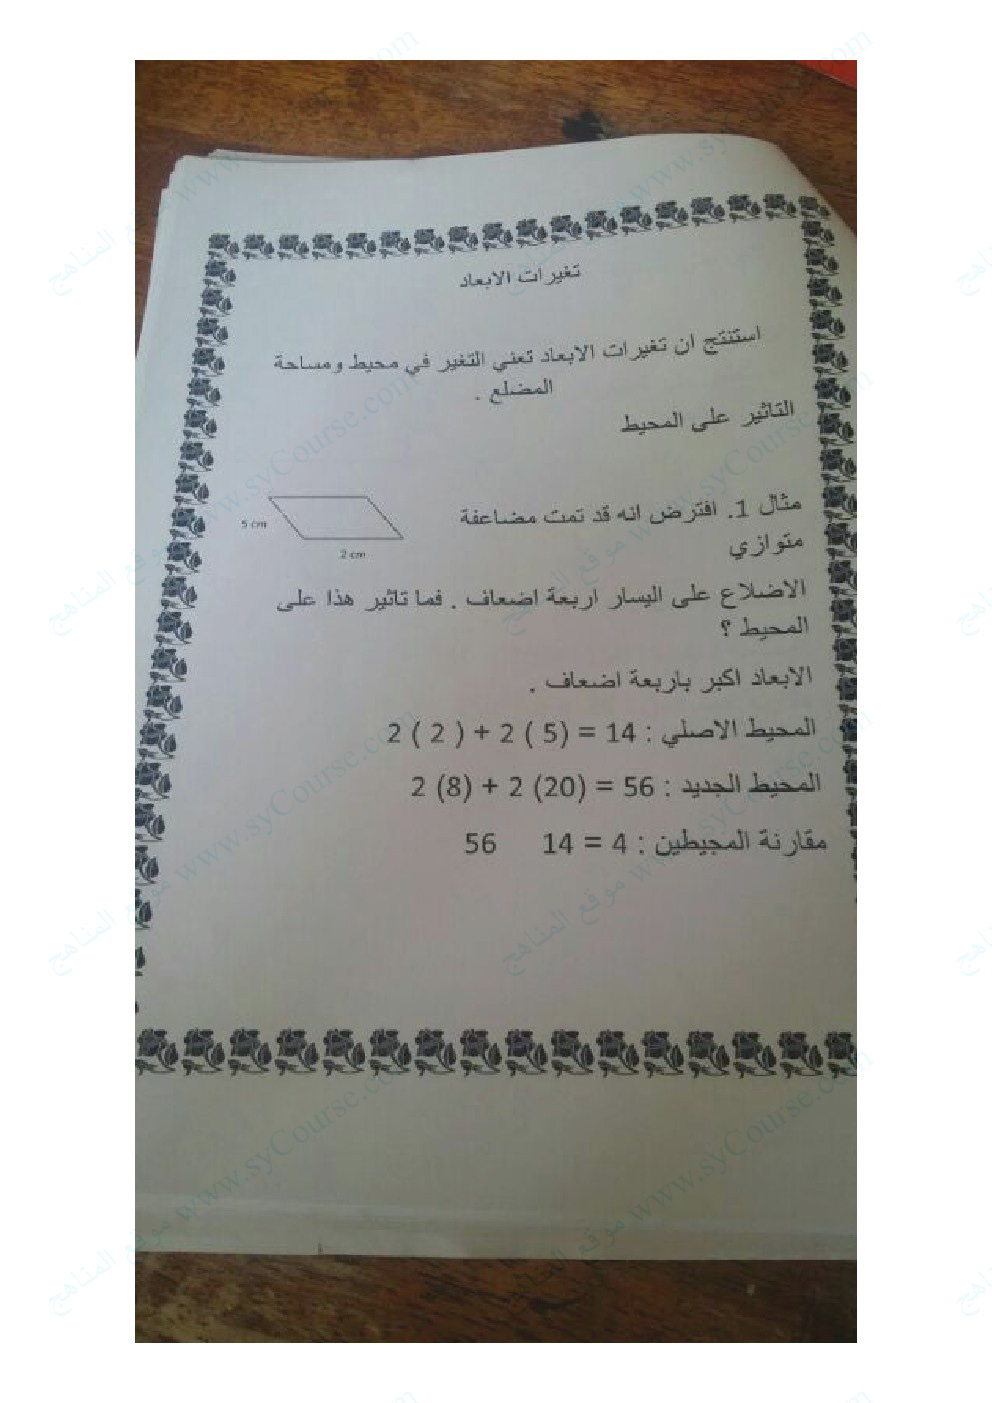 تغيرات الابعاد
استنتج ان تغيرات الابعاد تعني التغير في محيط ومساحة
المضلع .
التاثير على المحيط
مثال 1. افترض انه قد تمت مضاعفة
متوازي
5 cm
2 cm
الاضلاع على اليسار اربعة اضعاف . فما تاثير هذا على
المحيط ؟
الابعاد اكبر باربعة اضعاف .
المحيط الاصلي : 2 ( 2 ) + 2 ( 5) = 14
المحيط الجديد : 2 (8) + 2 (20) = 56
مقارنة المجيطين : 56 14 = 4
موقع المناهج www.syCourse.com